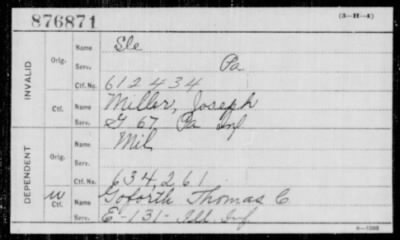 876871 (3-H-4)
INVALID
Orig. Name Sle
Serv. Pa
Ctf. No. 612434
Ctf. Name Miller, Joseph
Serv. G 67 Pa Inf
DEPENDENT
Orig. Name Mil
Serv.
Ctf. No. 634,261
W Ctf. Name Goforth Thomas C
Serv. E-131-Ill. Inf